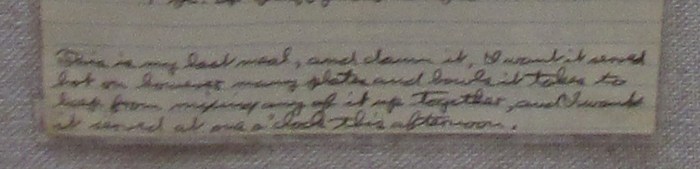 This is my last meal, and damn it, I want it served
hot on however many plates and bowls it takes to
keep from mixing any of it up together, and I want
it served at one o'clock this afternoon.